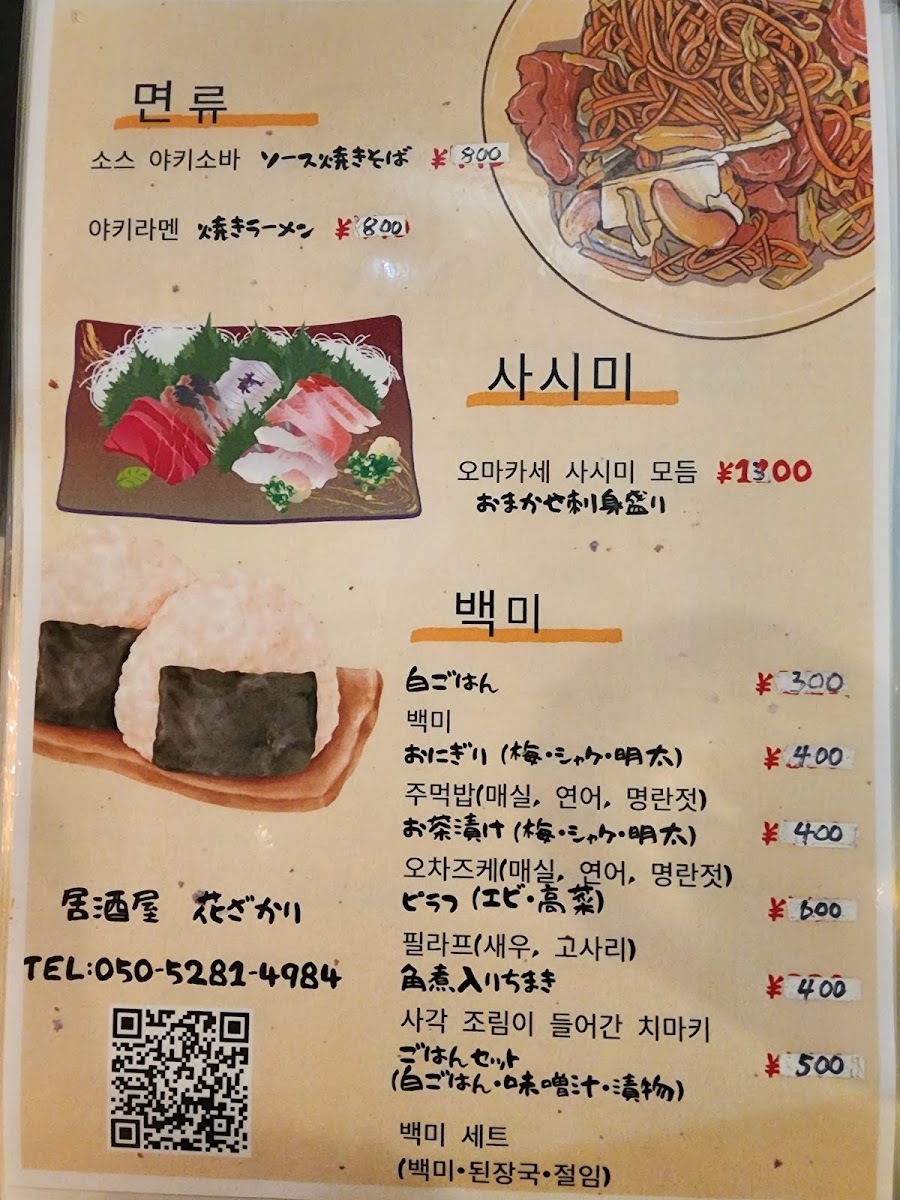 면류
소스 야키소바 ソース焼きそば ¥800
야키라멘 焼きラーメン ¥800
사시미
오마카세 사시미 모듬 ¥1300
おまかせ刺身盛り
백미
白ごはん ¥300
백미
おにぎり (梅・シャケ・明太) ¥400
주먹밥(매실, 연어, 명란젓)
お茶漬け (梅・シャケ・明太) ¥400
오차즈케(매실, 연어, 명란젓)
ピラフ (エビ・高菜) ¥600
필라프(새우, 고사리)
角煮入りちまき ¥400
사각 조림이 들어간 치마키
ごはんセット ¥500
(白ごはん・味噌汁・漬物)
백미 세트
(백미•된장국•절임)
居酒屋 花ざかり
TEL:050-5281-4984